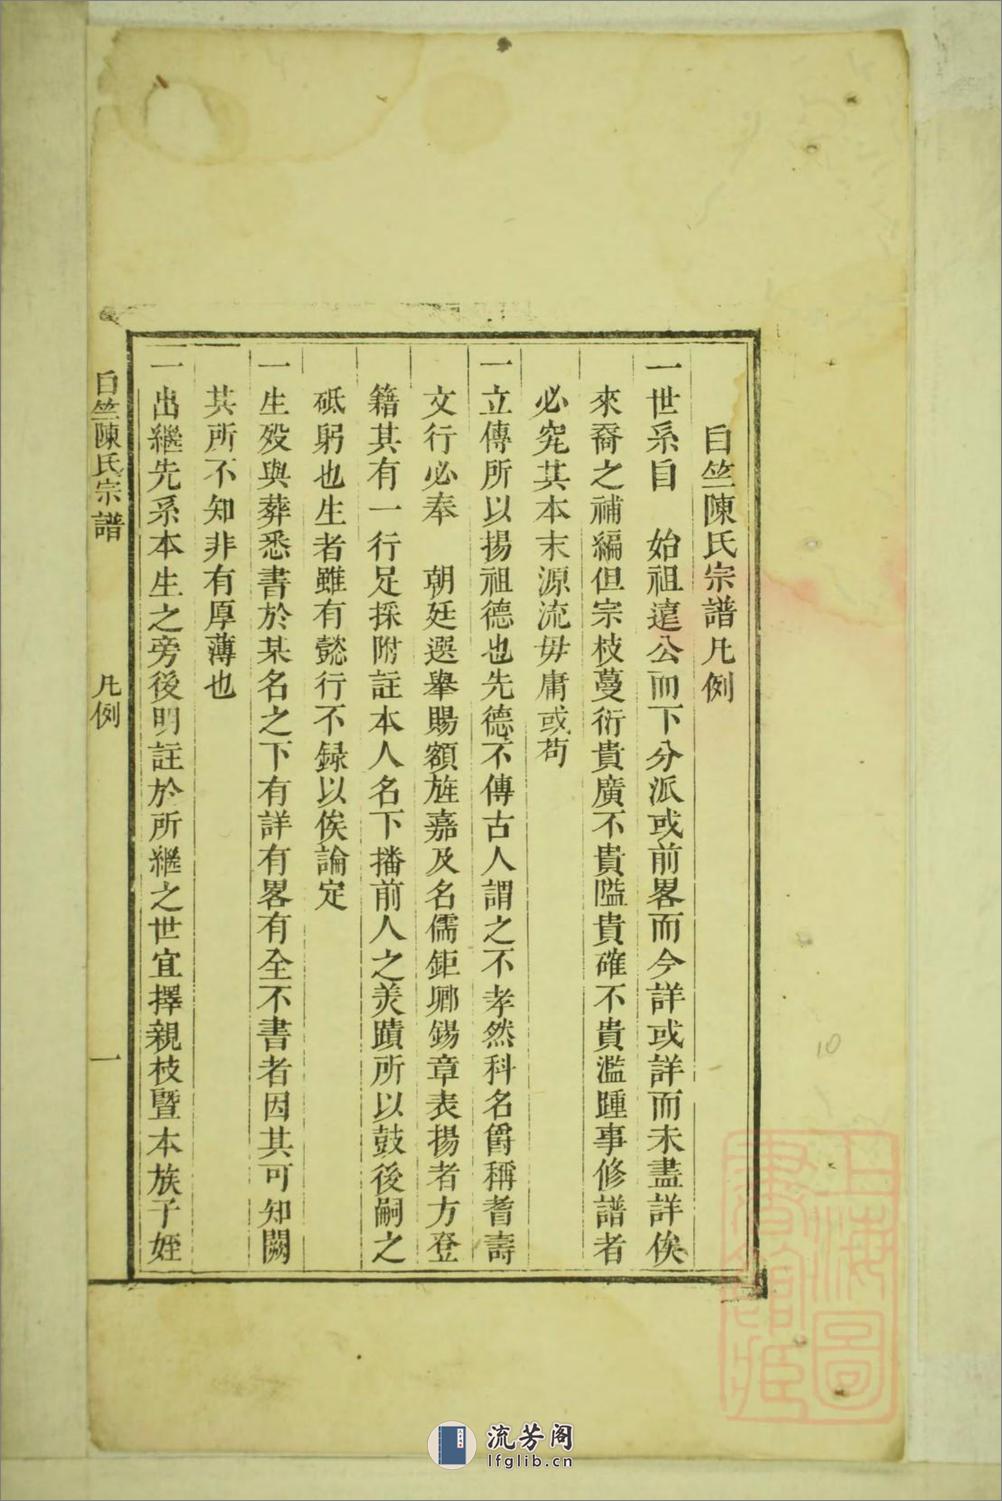 白竺陳氏宗譜凡例
一世系自　始祖遠公而下分派或前畧而今詳或詳而未盡詳俟
來裔之補編但宗枝蔓衍貴廣不貴隘貴確不貴濫踵事修譜者
必究其本末源流毋庸或苟
一立傳所以揚祖德也先德不傳古人謂之不孝然科名爵稱耆壽
文行必奉　朝廷選舉賜額旌嘉及名儒鉅卿錫章表揚者方登
籍其有一行足採附註本人名下播前人之美蹟所以鼓後嗣之
砥躬也生者雖有懿行不録以俟論定
一生歿與葬悉書於某名之下有詳有畧有全不書者因其可知闕
其所不知非有厚薄也
一出繼先系本生之旁後明註於所繼之世宜擇親枝暨本族子姪
白竺陳氏宗譜
凡例
一
上海圖書館藏
10
流芳阁
lfglib.cn